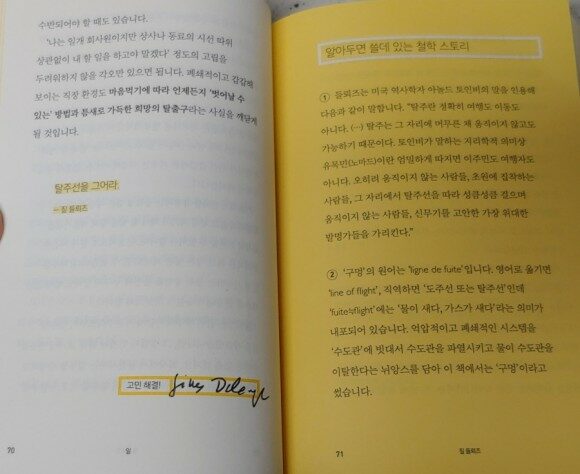 수반되어야 할 때도 있습니다.
'나는 일개 회사원이지만 상사나 동료의 시선 따위
상관없이 내 할 일을 하고야 말겠다' 정도의 고립을
두려워하지 않을 각오만 있으면 됩니다. 폐쇄적이고 갑갑해
보이는 직장 환경도 마음먹기에 따라 언제든지 '벗어날 수
있는' 방법과 틈새로 가득한 희망의 탈출구라는 사실을 깨닫게
될 것입니다.
탈주선을 그어라.
— 질 들뢰즈
고민 해결!
Gilles Deleuze
70
일
알아두면 쓸데 있는 철학 스토리
① 들뢰즈는 미국 역사학자 아놀드 토인비의 말을 인용해
다음과 같이 말합니다. "탈주란 정확히 여행도 이동도
아니다. (…) 탈주는 그 자리에 머무른 채 움직이지 않고도
가능하기 때문이다. 토인비가 말하는 지리학적 의미상
유목민(노마드)이란 엄밀하게 따지면 이주민도 여행자도
아니다. 오히려 움직이지 않는 사람들, 초원에 집착하는
사람들, 그 자리에서 탈주선을 따라 성큼성큼 걸으며
움직이지 않는 사람들, 신무기를 고안한 가장 위대한
발명가들을 가리킨다."
② '구멍'의 원어는 'ligne de fuite'입니다. 영어로 옮기면
'line of flight', 직역하면 '도주선 또는 탈주선'인데
'fuite≒flight'에는 '물이 새다, 가스가 새다'라는 의미가
내포되어 있습니다. 억압적이고 폐쇄적인 시스템을
'수도관'에 빗대서 수도관을 파열시키고 물이 수도관을
이탈한다는 뉘앙스를 담아 이 책에서는 '구멍'이라고
썼습니다.
71
질 들뢰즈